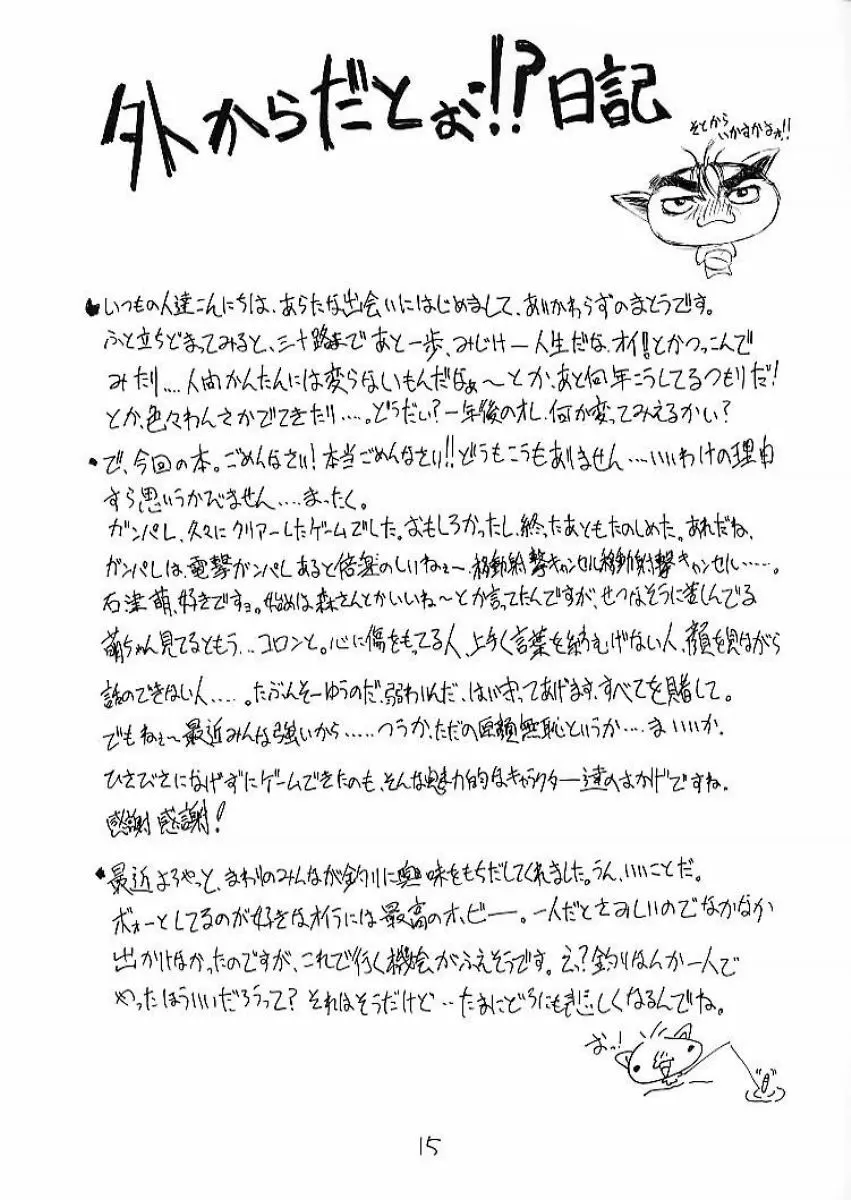 外からだとぉ!!?日記
そとから
いかすかよぉ!!
●いつもの人達こんにちは、あらたな出会いにはじめまして、あいかわらずのまとうです。
ふと立ちどまってみると、三十路まであと一歩、みじけー人生だな、オイ!とかつっこんで
みたり....人間かんたんには変らないもんだなぁ~とか、あと何年こうしてるつもりだ!
とか、色々わんさかでてきたり.....。どうだい?一年後のオレ、何か変ってみえるかい?
・で、今回の本。ごめんなさい!本当ごめんなさい!!どうもこうもありません...いいわけの理由
すら思いうかびません....まったく。
ガンパレ、久々にクリアーしたゲームでした。おもしろかったし、終ったあともたのしめた。あれだね、
ガンパレは、電撃ガンパレあると倍楽のしいねぇ~、移動射撃キャンセル移動射撃キャンセル.....。
石津萌、好きですョ。始めは森さんとかいいね~とか言ってたんですが、せつなそうに苦しんでる
萌ちゃん見てるともう...コロンと。心に傷をもってる人、上手く言葉を紡むげない人、顔を見ながら
話のできない人.....。たぶんそーゆうのだ、弱わいんだ、はい守ってあげます、すべてを賭して。
でもねぇ~最近みんな強いから.....つうか、ただの厚顔無恥というか....まいいか、
ひさびさになげずにゲームできたのも、そんな魅力的なキャラクター達のおかげですね。
感謝感謝!
・最近よろやっと、まわりのみんなが釣りに興味をもちだしてくれました。うん、いいことだ。
ボォーとしてるのが好きなオイラには最高のホビー。一人だとさみしいのでなかなか
出かけなかったのですが、これで行く機会がふえそうです。え?釣りなんか一人で
やったほういいだろうって?それはそうだけど..たまにどうにも悲しくなるんでね。
おっ!
15